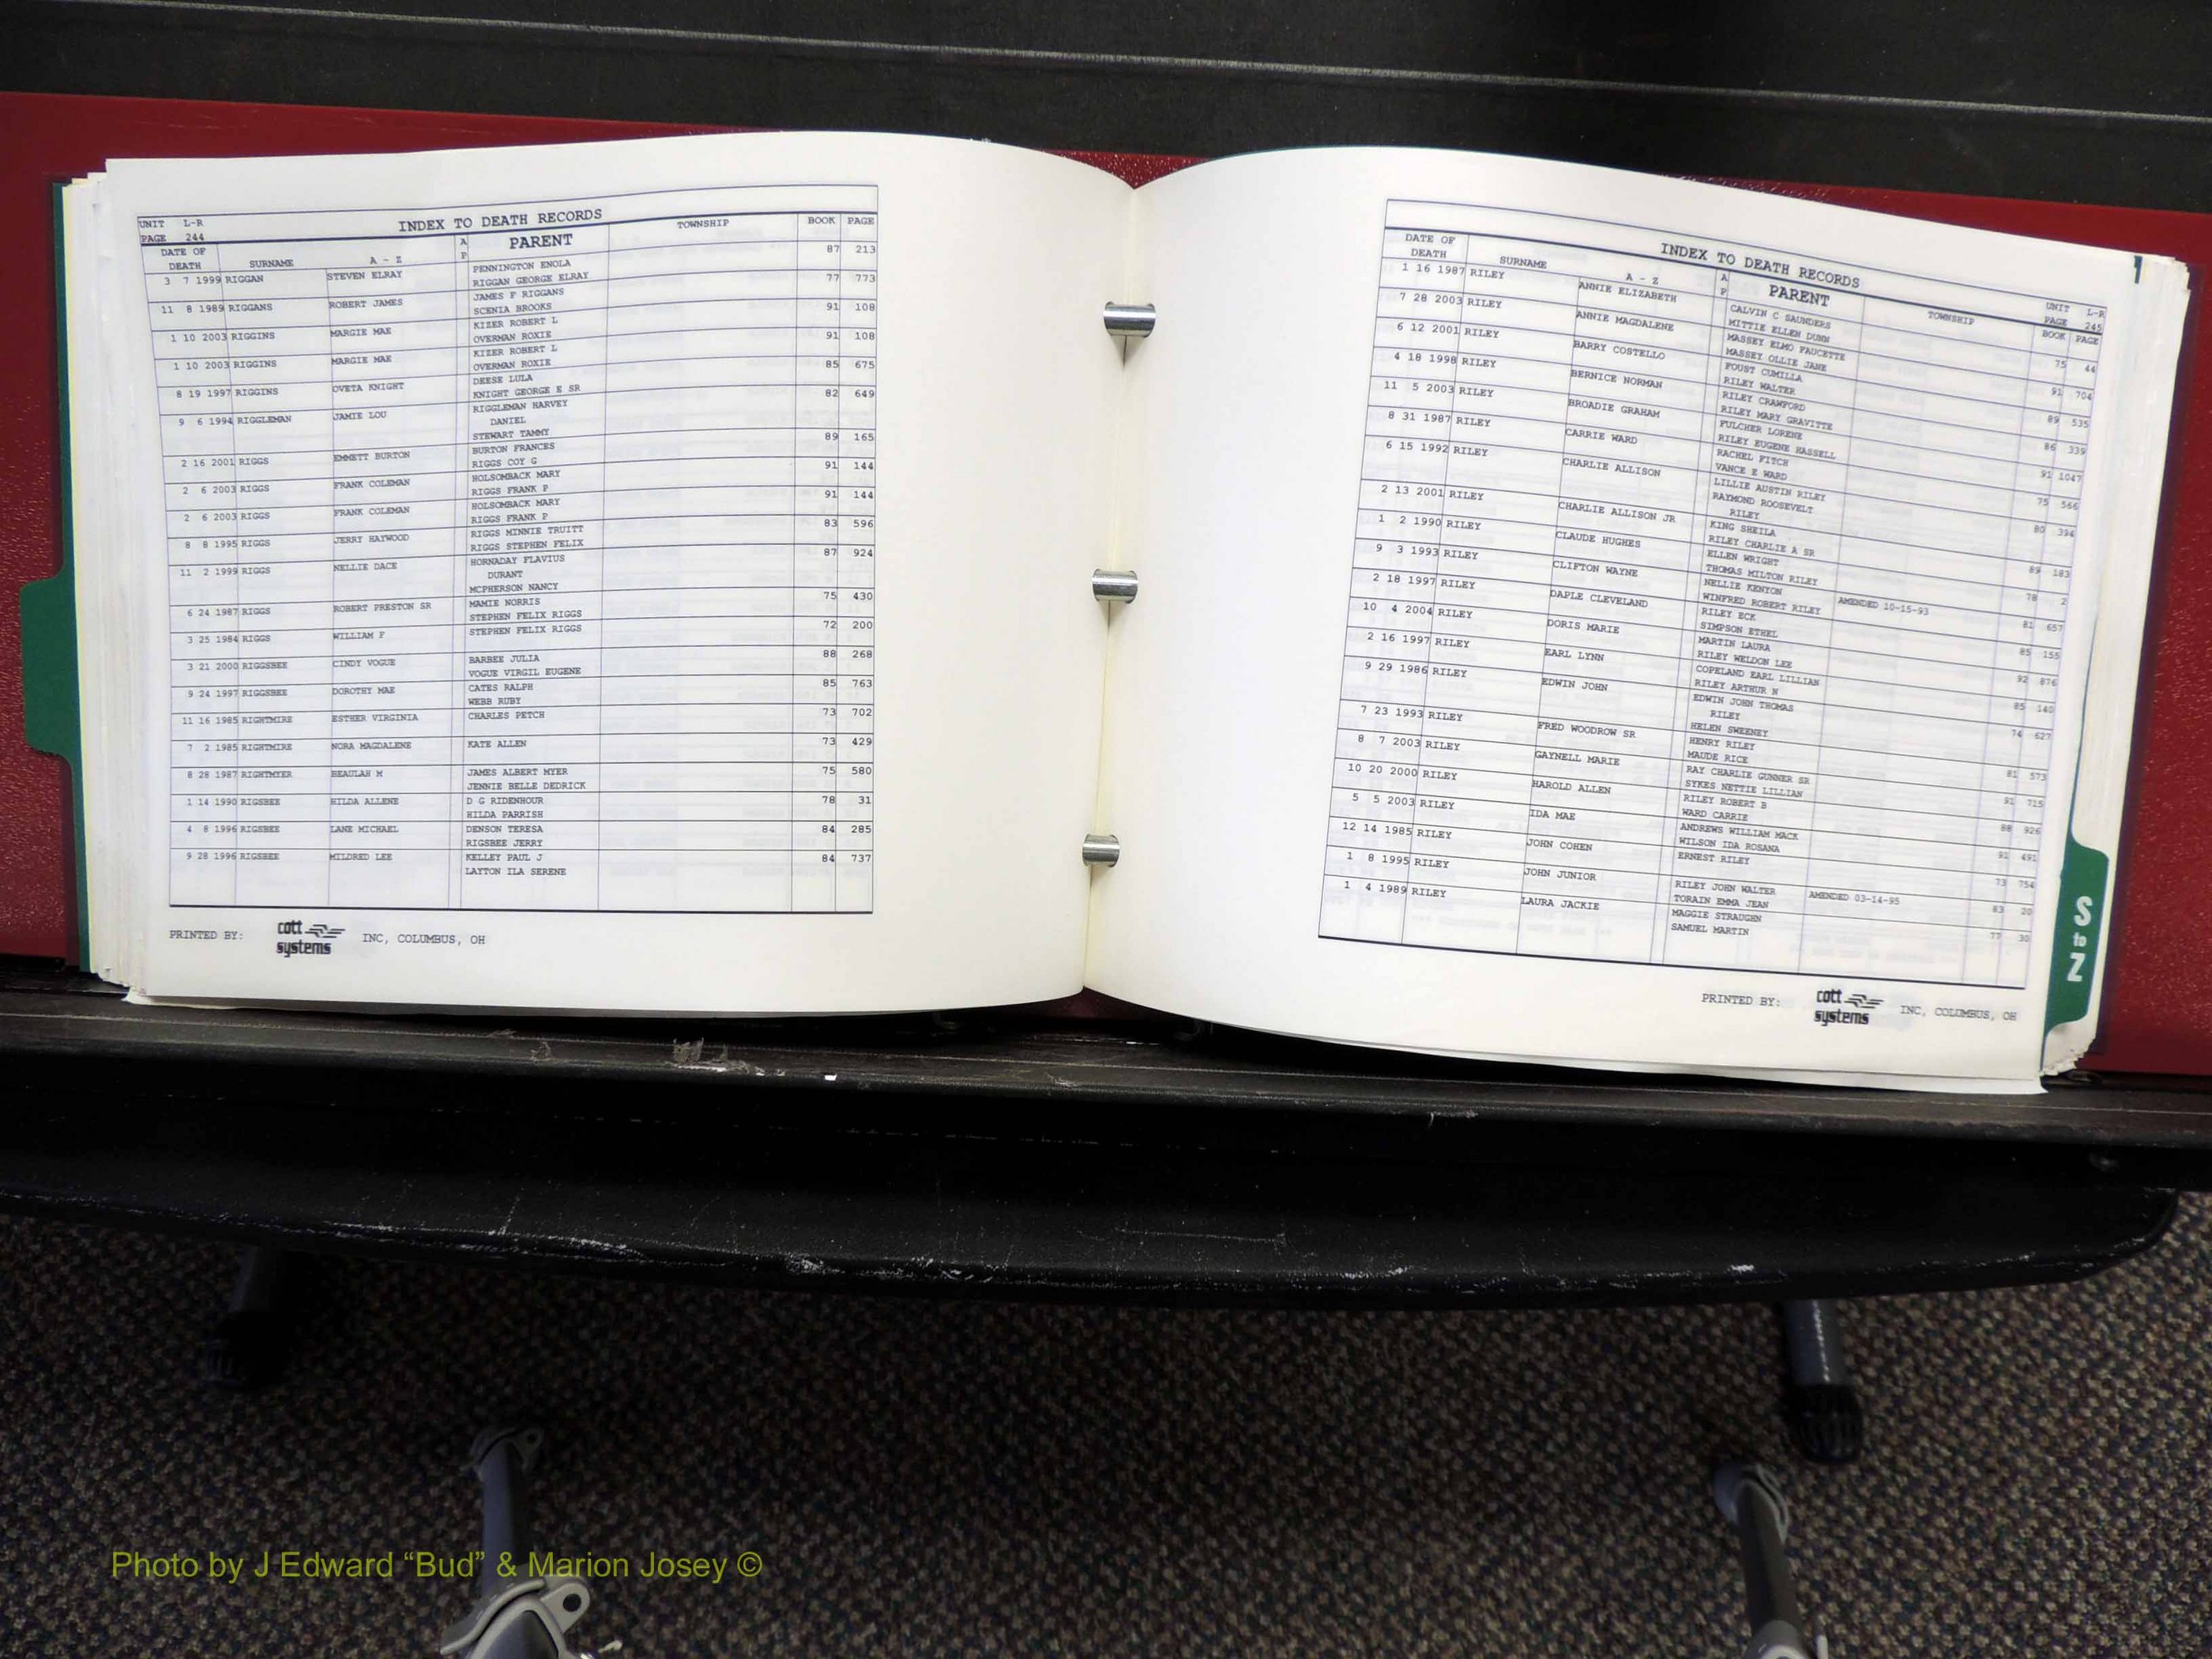 UNIT L-R
PAGE 244
INDEX TO DEATH RECORDS
DATE OF DEATH SURNAME A - Z A P PARENT TOWNSHIP BOOK PAGE
3 7 1999 RIGGAN STEVEN ELRAY PENNINGTON ENOLA 87 213
RIGGAN GEORGE ELRAY
11 8 1989 RIGGANS ROBERT JAMES JAMES F RIGGANS 77 773
SCENIA BROOKS
1 10 2003 RIGGINS MARGIE MAE KIZER ROBERT L 91 108
OVERMAN ROXIE
1 10 2003 RIGGINS MARGIE MAE KIZER ROBERT L 91 108
OVERMAN ROXIE
8 19 1997 RIGGINS OVETA KNIGHT DEESE LULA 85 675
KNIGHT GEORGE E SR
9 6 1994 RIGGLEMAN JAMIE LOU RIGGLEMAN HARVEY 82 649
DANIEL
STEWART TAMMY
2 16 2001 RIGGS EMMETT BURTON BURTON FRANCES 89 165
RIGGS COY G
2 6 2003 RIGGS FRANK COLEMAN HOLSOMBACK MARY 91 144
RIGGS FRANK P
2 6 2003 RIGGS FRANK COLEMAN HOLSOMBACK MARY 91 144
RIGGS FRANK P
8 8 1995 RIGGS JERRY HAYWOOD RIGGS MINNIE TRUITT 83 596
RIGGS STEPHEN FELIX
11 2 1999 RIGGS NELLIE DACE HORNADAY FLAVIUS 87 924
DURANT
MCPHERSON NANCY
6 24 1987 RIGGS ROBERT PRESTON SR MAMIE NORRIS 75 430
STEPHEN FELIX RIGGS
3 25 1984 RIGGS WILLIAM F STEPHEN FELIX RIGGS 72 200
3 21 2000 RIGGSBEE CINDY VOGUE BARBEE JULIA 88 268
VOGUE VIRGIL EUGENE
9 24 1997 RIGGSBEE DOROTHY MAE CATES RALPH 85 763
WEBB RUBY
11 16 1985 RIGHTMIRE ESTHER VIRGINIA CHARLES PETCH 73 702
7 2 1985 RIGHTMIRE NORA MAGDALENE KATE ALLEN 73 429
8 28 1987 RIGHTMYER BEAULAH M JAMES ALBERT MYER 75 580
JENNIE BELLE DEDRICK
1 14 1990 RIGSBEE HILDA ALLENE D G RIDENHOUR 78 31
HILDA PARRISH
4 8 1996 RIGSBEE LANE MICHAEL DENSON TERESA 84 285
RIGSBEE JERRY
9 28 1996 RIGSBEE MILDRED LEE KELLEY PAUL J 84 737
LAYTON ILA SERENE
PRINTED BY: cott systems INC, COLUMBUS, OH
INDEX TO DEATH RECORDS
UNIT L-R
PAGE 245
DATE OF DEATH SURNAME A - Z A P PARENT TOWNSHIP BOOK PAGE
1 16 1987 RILEY ANNIE ELIZABETH CALVIN C SAUNDERS 75 44
MITTIE ELLEN DUNN
7 28 2003 RILEY ANNIE MAGDALENE MASSEY ELMO FAUCETTE 91 704
MASSEY OLLIE JANE
6 12 2001 RILEY BARRY COSTELLO FOUST CUMILLA 89 535
RILEY WALTER
4 18 1998 RILEY BERNICE NORMAN RILEY CRAWFORD 86 339
RILEY MARY GRAVITTE
11 5 2003 RILEY BROADIE GRAHAM FULCHER LORENE 91 1047
RILEY EUGENE HASSELL
8 31 1987 RILEY CARRIE WARD RACHEL FITCH 75 566
VANCE E WARD
6 15 1992 RILEY CHARLIE ALLISON LILLIE AUSTIN RILEY 80 394
RAYMOND ROOSEVELT
RILEY
2 13 2001 RILEY CHARLIE ALLISON JR KING SHEILA 89 183
RILEY CHARLIE A SR
1 2 1990 RILEY CLAUDE HUGHES ELLEN WRIGHT 78 2
THOMAS MILTON RILEY
9 3 1993 RILEY CLIFTON WAYNE NELLIE KENYON AMENDED 10-15-93 81 657
WINFRED ROBERT RILEY
2 18 1997 RILEY DAPLE CLEVELAND RILEY ECK 85 155
SIMPSON ETHEL
10 4 2004 RILEY DORIS MARIE MARTIN LAURA 92 876
RILEY WELDON LEE
2 16 1997 RILEY EARL LYNN COPELAND EARL LILLIAN 85 140
RILEY ARTHUR N
9 29 1986 RILEY EDWIN JOHN EDWIN JOHN THOMAS 74 627
RILEY
HELEN SWEENEY
7 23 1993 RILEY FRED WOODROW SR HENRY RILEY 81 573
MAUDE RICE
8 7 2003 RILEY GAYNELL MARIE RAY CHARLIE GUNNER SR 91 715
SYKES NETTIE LILLIAN
10 20 2000 RILEY HAROLD ALLEN RILEY ROBERT B 88 926
WARD CARRIE
5 5 2003 RILEY IDA MAE ANDREWS WILLIAM MACK 91 491
WILSON IDA ROSANA
12 14 1985 RILEY JOHN COHEN ERNEST RILEY 73 754
1 8 1995 RILEY JOHN JUNIOR RILEY JOHN WALTER AMENDED 03-14-95 83 20
TORAIN EMMA JEAN
1 4 1989 RILEY LAURA JACKIE MAGGIE STRAUGHN 77 30
SAMUEL MARTIN
PRINTED BY: cott systems INC, COLUMBUS, OH
S to Z
Photo by J Edward “Bud” & Marion Josey ©